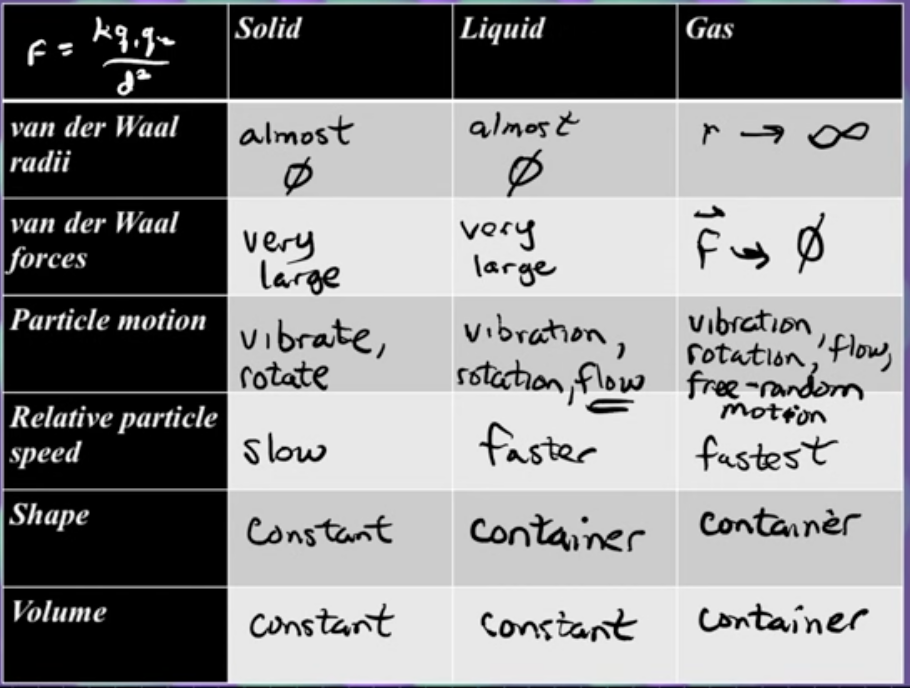 F = kq₁q₂/d²
Solid
Liquid
Gas
van der Waal
radii
almost
∅
almost
∅
r → ∞
van der Waal
forces
very
large
very
large
F⃗ → ∅
Particle motion
vibrate,
rotate
vibration,
rotation, flow
vibration,
rotation, flow,
free-random
motion
Relative particle
speed
slow
faster
fastest
Shape
constant
container
container
Volume
constant
constant
container